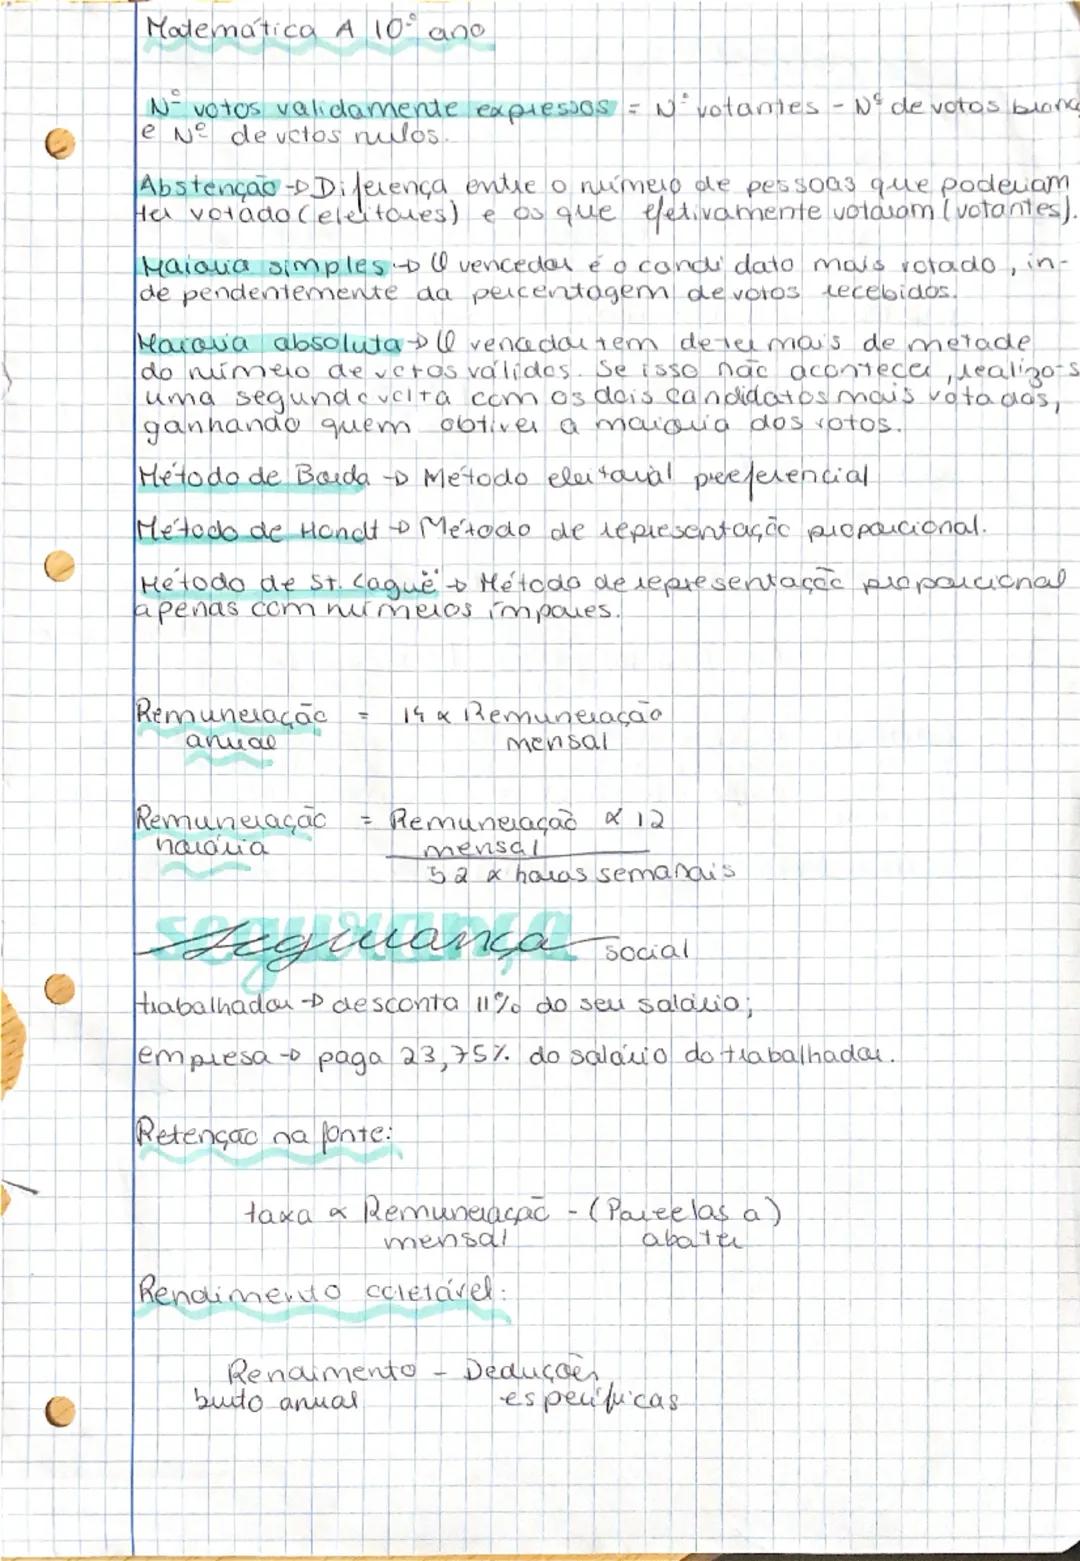 Matemática A 10º ano
Nº votos validamente expressos = Nº votantes - Nº de votos branc
e Nº de votos nulos.
Abstenção → Diferença entre o número de pessoas que poderiam
ter votado (eleitores) e os que efetivamente votaram (votantes).
Maioria simples → O vencedor é o candidato mais votado, in-
dependentemente da percentagem de votos recebidos.
Maioria absoluta → O vencedor tem de ter mais de metade
do número de votos válidos. Se isso não acontecer, realiza-s
uma segunda volta com os dois candidatos mais votados,
ganhando quem obtiver a maioria dos votos.
Método de Borda → Método eleitoral preeferencial
Método de Hondt → Método de representação proporcional.
Método de St. Laguë → Método de representação proporcional
apenas com números ímpares.
Remuneração = 14 x Remuneração
anual mensal
Remuneração = Remuneração x 12
horária mensal
52 x horas semanais
segurança social
trabalhador → desconta 11% do seu salário;
empresa → paga 23,75% do salário do trabalhador.
Retenção na fonte:
taxa x Remuneração - (Parcelas a)
mensal abater
Rendimento coletável:
Rendimento - Deduções
bruto anual específicas